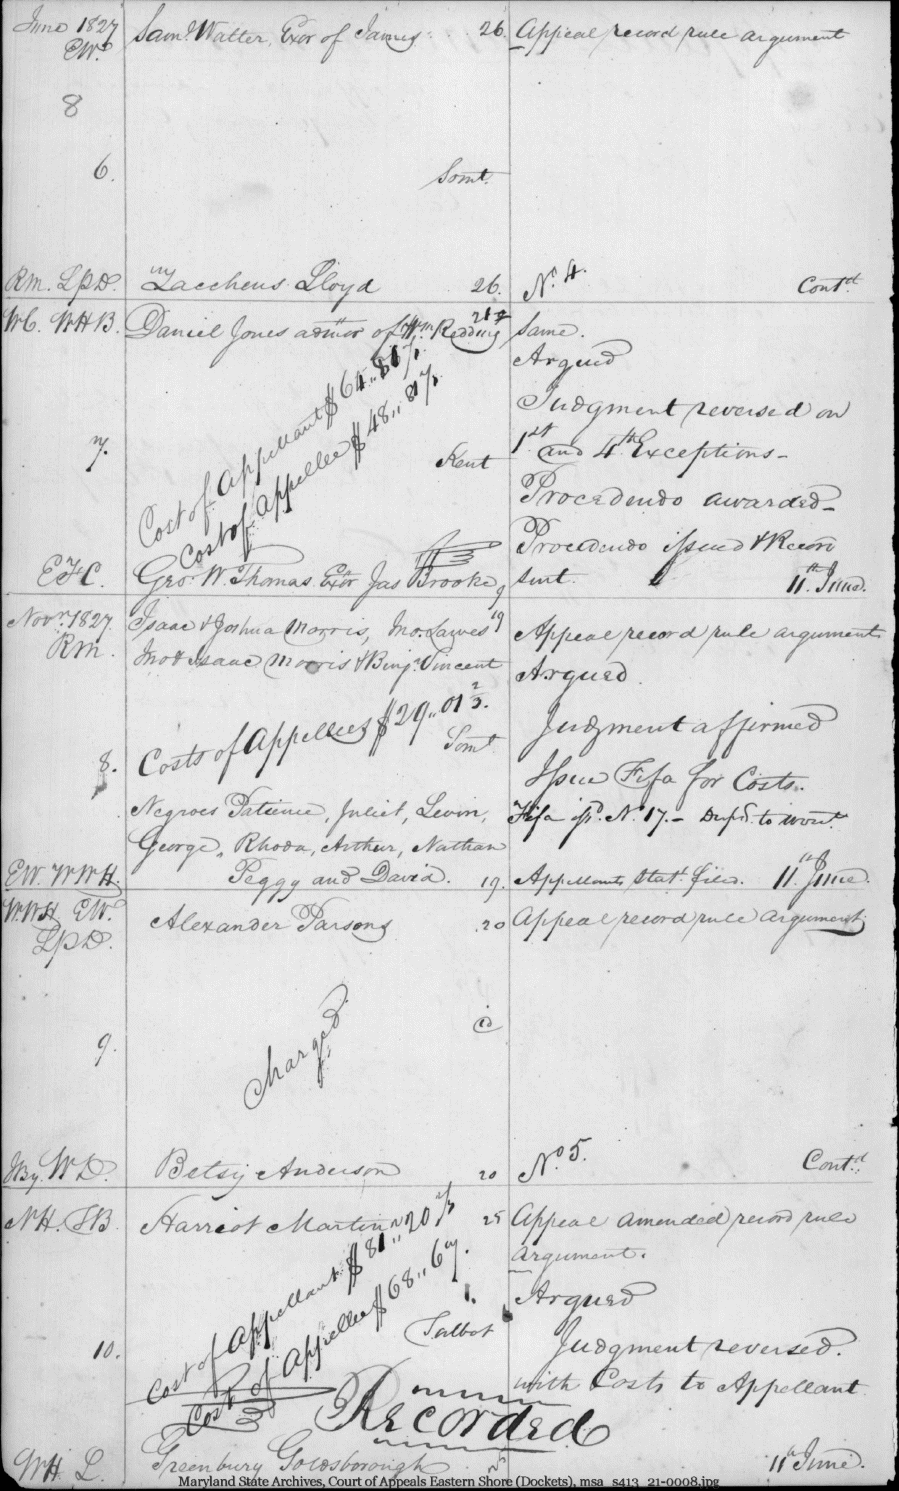 June 1827
EW.
Saml. Walter, Exor of James 26.
Appeal record rule argument
8
6.
Somt.
Rm. LPD.
Zaccheus Lloyd 26.
No. 4. Contd.
WC. WHB.
Daniel Jones admor of Wm Redding
same.
Argued
Judgment reversed on
1st and 4th Exceptions-
Procedendo awarded-
Procedendo issued & Record
sent. 11th June.
Cost of Appellant $64..81 1/3
Cost of Appellee $48..81 1/3
7.
Kent
Geo. W. Thomas Exor Jas Brooke 9
Novr. 1827.
Rm.
Isaac & Joshua Morris, Jno. Lawes 19
Jno & Isaac Morris & Benjn. Vincent
Appeal record rule argument
Argued.
Judgment affirmed
Issue Fifa for Costs.
Costs of Appellees $29..01 2/3.
Somt
8.
Negroes Patience, Juliet, Levin,
George, Rhoda, Arthur, Nathan
Peggy and David. 19.
Fifa No. 17.- to
EW. WWH
Appellants Stat. filed. 11th June.
WWH EW.
LPD.
Alexander Parsons 20
Appeal record rule argument.
Charged
9.
WD.
Betsy Anderson 20
No 5. Contd.
NH. TB
Harriot Martin 25
Appeal amended record rule
argument.
Argued
Judgment reversed.
with Costs to Appellant
Cost of Appellant $81..20 2/3
Cost of Appellee $68..67.
Talbot
10.
Recorded
WH L.
Greenbury Goldsborough
11th June.
Maryland State Archives, Court of Appeals Eastern Shore (Dockets), msa_s413_21-0008.jpg